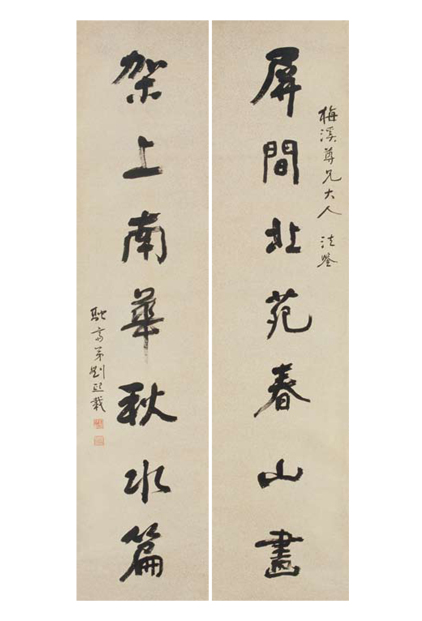 梅溪尊兄大人 法鑒
屏間北苑春山畫
架上南華秋水篇
弟劉熙載